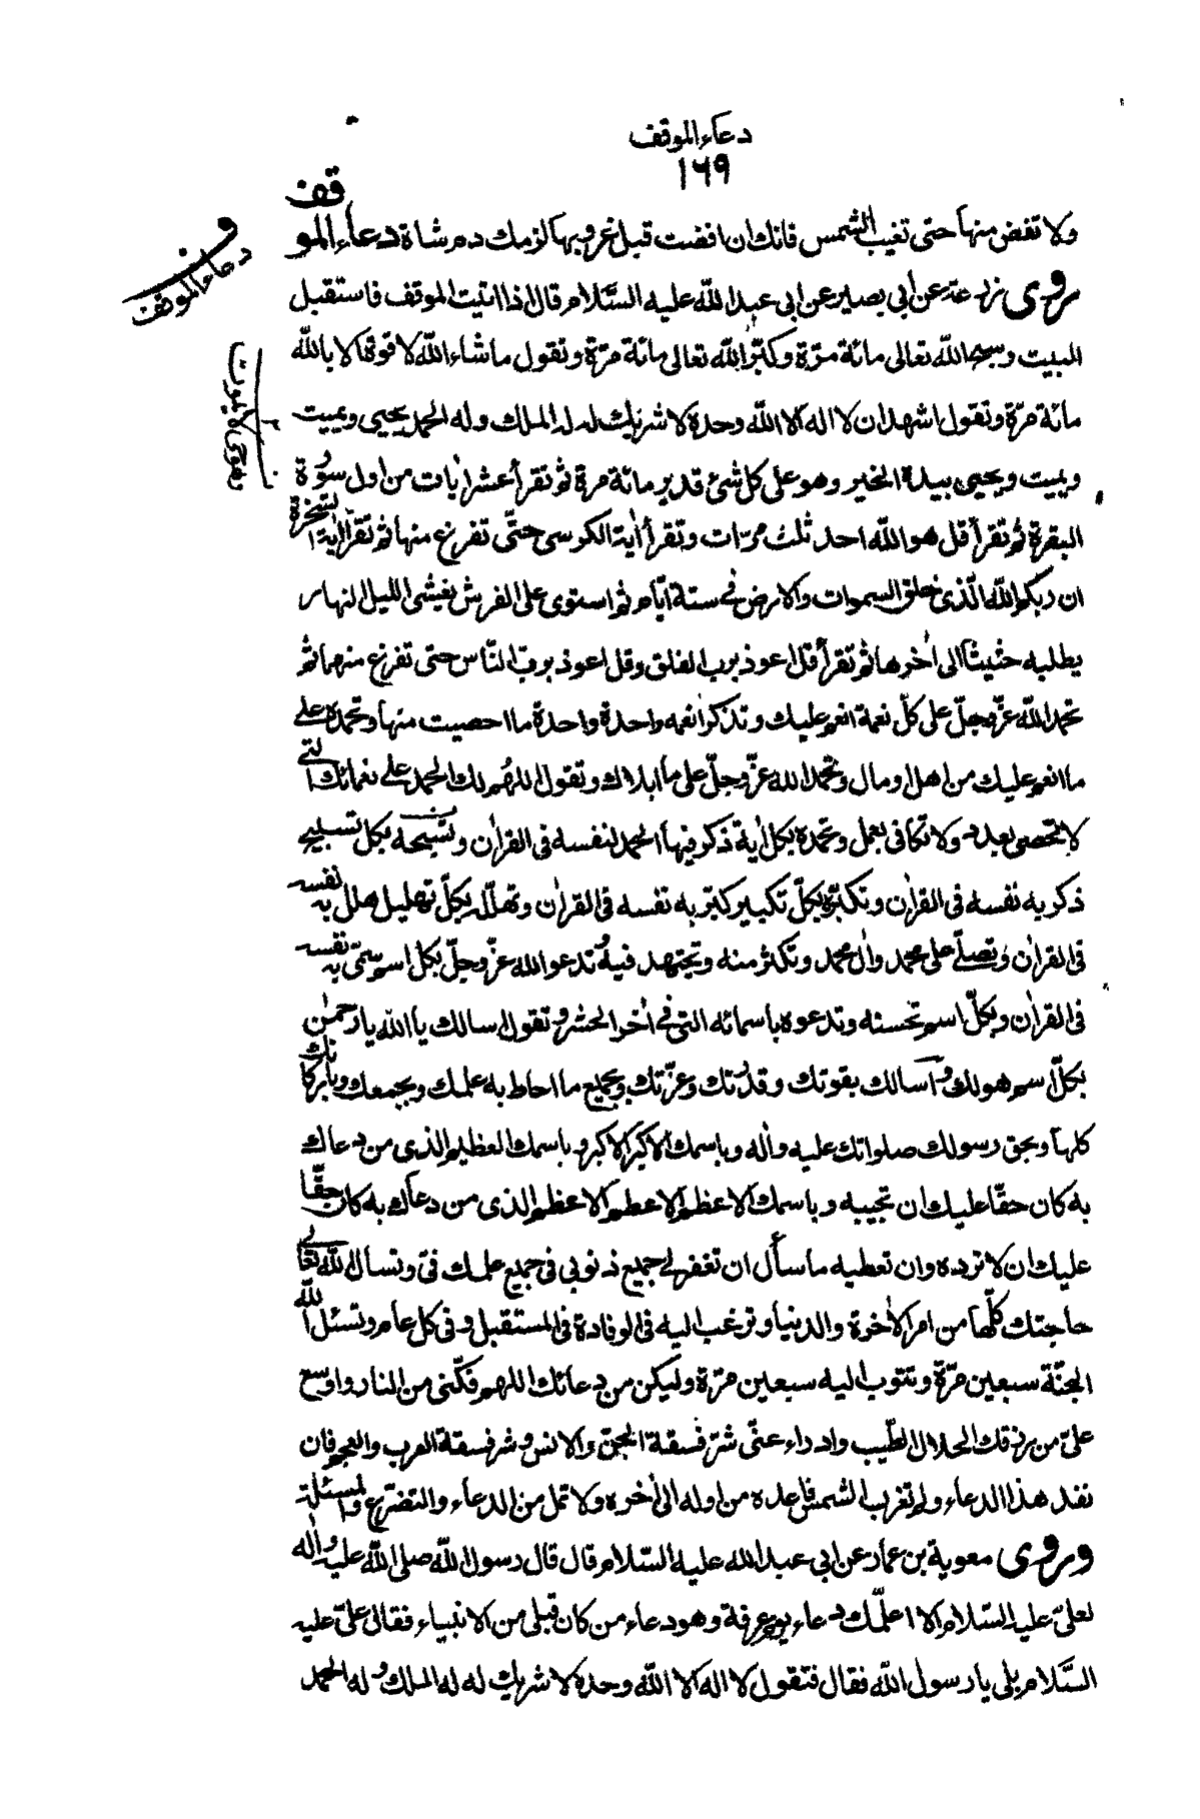 دعاء الموقف
١٦٩
ولا تفض منها حتى تغيب الشمس فانك ان افضت قبل غروبها لزمك دم شاة دعاء الموقف
وروى زرعة عن ابى بصير عن ابى عبد الله عليه السّلام قال اذا اتيت الموقف فاستقبل
البيت وسبح الله تعالى مائة مرّة وكبّر الله تعالى مائة مرّة وتقول ما شاء اللّٰه لا قوة الا باللّٰه
مائة مرّة وتقول اشهد ان لا اله الا اللّٰه وحده لا شريك له له الملك وله الحمد يحيى ويميت
ويميت ويحيى بيده الخير وهو على كل شئ قدير مائة مرة ثم تقرأ عشر اٰيات من اول سورة
البقرة ثم تقرأ قل هو اللّٰه احد ثلث مرّات وتقرأ اٰية الكرسى حتّى تفرغ منها ثم تقرأ اٰية السخرة
ان ربكم اللّٰه الّذى خلق السموات والارض فى ستة ايّام ثم استوى على العرش يغشى الليل النهار
يطلبه حثيثاً الى اٰخرها ثم تقرأ قل اعوذ برب الفلق وقل اعوذ بربّ النّاس حتى تفرغ منهما ثم
تحمد اللّٰه عزّ وجلّ على كلّ نعمة انعم عليك وتذكر انعمه واحدة واحدة ما احصيت منها وتحمده على
ما انعم عليك من اهل او مال وتحمد الله عزّ وجلّ على ما ابلاك وتقول اللهم لك الحمد على نعمائك التى
لا تحصى بعدد ولا تكافى بعمل وتحمده بكل اٰية ذكر فيها الحمد لنفسه فى القراٰن وتسبّحه بكل تسبيح
ذكر به نفسه فى القراٰن وتكبّره بكلّ تكبير كبّر به نفسه فى القراٰن وتهلّله بكلّ تهليل هلل به نفسه
فى القراٰن وتصلّى على محمد واٰل محمد وتكثر منه وتجتهد فيه وتدعو الله عزّ وجلّ بكل اسم سمّى به نفسه
فى القراٰن وبكلّ اسم تحسنه وتدعوه باسمائه التى فى اٰخر الحشر وتقول اسالك يا اللّٰه يا رحمٰن
بكلّ اسم هو لك واسالك بقوتك وقدرتك وعزّتك وبجميع ما احاط به علمك وبجمعك وباركانك
كلها وبحق رسولك صلواتك عليه واٰله وباسمك الاكبر الاكبر وباسمك العظيم الذى من دعاك
به كان حقّا عليك ان تجيبه وباسمك الاعظم الاعظم الاعظم الذى من دعاك به كان حقّا
عليك ان لا تردده وان تعطيه ما سأل ان تغفر لى جميع ذنوبى فى جميع علمك فىّ وتسال اللّٰه تعالى
حاجتك كلّها من امر الاٰخرة والدنيا وترغب اليه فى الوفادة فى المستقبل وفى كل عام وتسئل اللّٰه
الجنّة سبعين مرّة وتتوب اليه سبعين مرّة وليكن من دعائك اللهم فكّنى من النار واوسع
علىّ من رزقك الحلال الطّيب وادراء عنّى شرّ فسقة الجنّ والانس وشر فسقة العرب والعجم فان
نفد هذا الدعاء ولم تغرب الشمس فاعده من اوله الى اٰخره ولا تمل من الدعاء والتضرّع والمسئلة
وروى معوية بن عمار عن ابى عبد الله عليه السّلام قال قال رسول اللّٰه صلى اللّٰه عليه واٰله
لعلىّ عليه السّلام الا اعلّمك دعاء يوم عرفة وهو دعاء من كان قبلى من الانبياء فقال علىّ عليه
السّلام بلى يا رسول اللّٰه فقال فتقول لا اله الا اللّٰه وحده لا شريك له له الملك وله الحمد
دعاء الموقف
وهو حى لا يموت